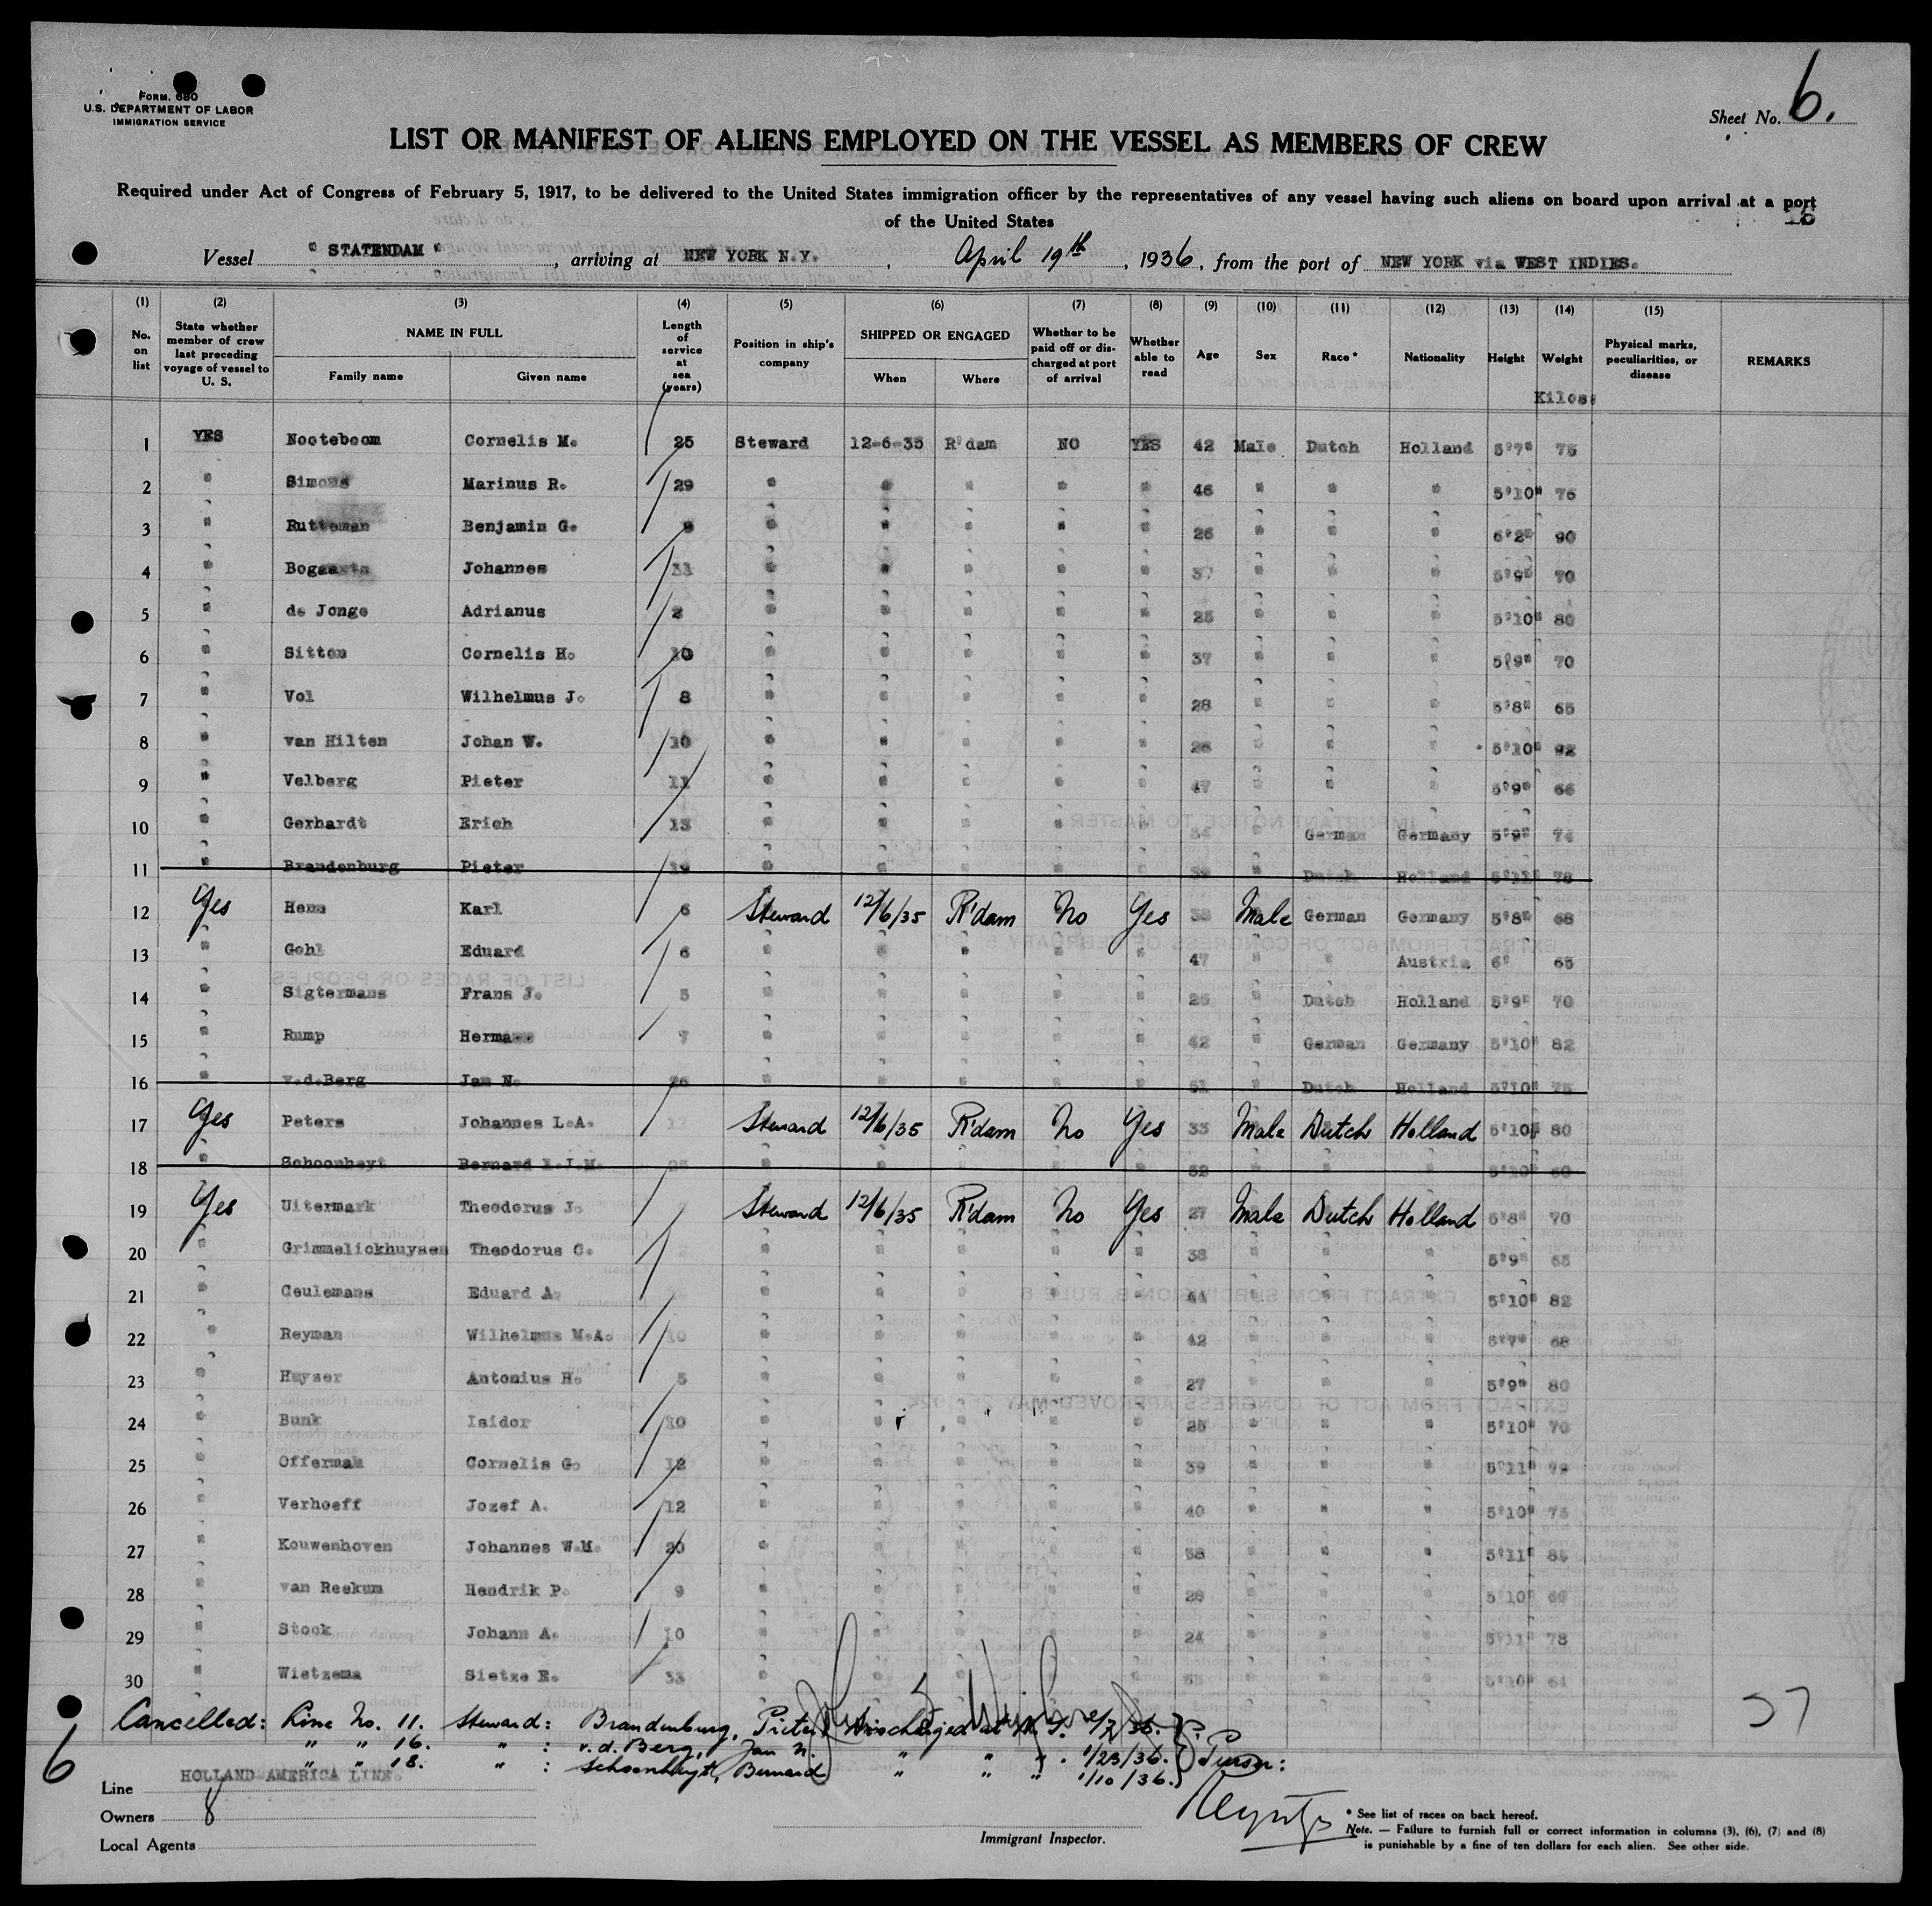 FORM 680
U.S. DEPARTMENT OF LABOR
IMMIGRATION SERVICE
Sheet No. 6.
LIST OR MANIFEST OF ALIENS EMPLOYED ON THE VESSEL AS MEMBERS OF CREW
Required under Act of Congress of February 5, 1917, to be delivered to the United States immigration officer by the representatives of any vessel having such aliens on board upon arrival at a port
of the United States
Vessel "STATENDAM", arriving at NEW YORK N.Y., April 19th, 1936, from the port of NEW YORK via WEST INDIES.
(1) (2) (3) (4) (5) (6) (7) (8) (9) (10) (11) (12) (13) (14) (15)
No. on list State whether member of crew last preceding voyage of vessel to U. S. NAME IN FULL Family name Given name Length of service at sea (years) Position in ship's company SHIPPED OR ENGAGED When Where Whether to be paid off or discharged at port of arrival Whether able to read Age Sex Race* Nationality Height Weight Physical marks, peculiarities, or disease REMARKS
Kilos:
1 YES Nooteboom Cornelis M. 25 Steward 12-6-35 R'dam NO YES 42 Male Dutch Holland 5'7" 75
2 " Simons Marinus R. 29 " " " " " 46 " " " 5'10" 76
3 " Rutteman Benjamin G. 9 " " " " " 26 " " " 6'2" 90
4 " Bogaarts Johannes " " " " " 37 " " " 5'9" 70
5 " de Jonge Adrianus 2 " " " " " 25 " " " 5'10" 80
6 " Sitton Cornelis H. 10 " " " " " 37 " " " 5'9" 70
7 " Vol Wilhelmus J. 8 " " " " " 28 " " " 5'8" 65
8 " van Hilten Johan W. 10 " " " " " 26 " " " 5'10" 92
9 " Velberg Pieter 11 " " " " " 47 " " " 5'9" 66
10 " Gerhardt Erich 13 " " " " " 34 " German Germany 5'9" 74
11 " Brandenburg Pieter 19 " " " " " " Dutch Holland 5'11" 78
12 Yes Henn Karl 6 Steward 12/6/35 R'dam No Yes 38 Male German Germany 5'8" 68
13 " Gohl Eduard 6 " " " " " 47 " " Austria 6' 65
14 " Sigtermans Frans J. 5 " " " " " 26 " Dutch Holland 5'9" 70
15 " Rump Hermann 7 " " " " " 42 " German Germany 5'10" 82
16 " v.d.Berg Jan N. 26 " " " " " 51 " Dutch Holland 5'10" 75
17 Yes Peters Johannes L.A. Steward 12/6/35 R'dam No Yes 33 Male Dutch Holland 5'10" 80
18 " Schoonheyt Bernard " " " " " 52 " " " 5'10" 60
19 Yes Uitermark Theodorus J. Steward 12/6/35 R'dam No Yes 27 Male Dutch Holland 5'8" 70
20 " Grimmelickhuysen Theodorus C. " " " " " 38 " " " 5'9" 65
21 " Ceulemans Eduard A. " " " " " 44 " " " 5'10" 82
22 " Reyman Wilhelmus M.A. 10 " " " " " 42 " " " 5'7" 68
23 " Huyser Antonius H. 5 " " " " " 27 " " " 5'9" 80
24 " Bunk Isidor 10 " " " " " 25 " " " 5'10" 70
25 " Offerman Cornelis G. 12 " " " " " 39 " " " 5'11" 79
26 " Verhoeff Jozef A. 12 " " " " " 40 " " " 5'10" 75
27 " Kouwenhoven Johannes W.M. 20 " " " " " 38 " " " 5'11" 85
28 " van Reekum Hendrik P. 9 " " " " " 28 " " " 5'10" 69
29 " Stock Johann A. 10 " " " " " 24 " " " 5'11" 78
30 " Wietzema Sietze E. 33 " " " " " " " " 5'10" 64
37
Cancelled: Line No. 11. Steward: Brandenburg, Pieter Discharged at N.Y. 1/2/36.
" " 16. " : v.d. Berg, Jan N. " " " . 1/23/36. Purser:
" " 18. " : Schoonheyt, Bernard " " " 1/10/36.
6
Line HOLLAND AMERICA LINE.
Owners
Local Agents
Immigrant Inspector.
* See list of races on back hereof.
Note. — Failure to furnish full or correct information in columns (3), (6), (7) and (8)
is punishable by a fine of ten dollars for each alien. See other side.